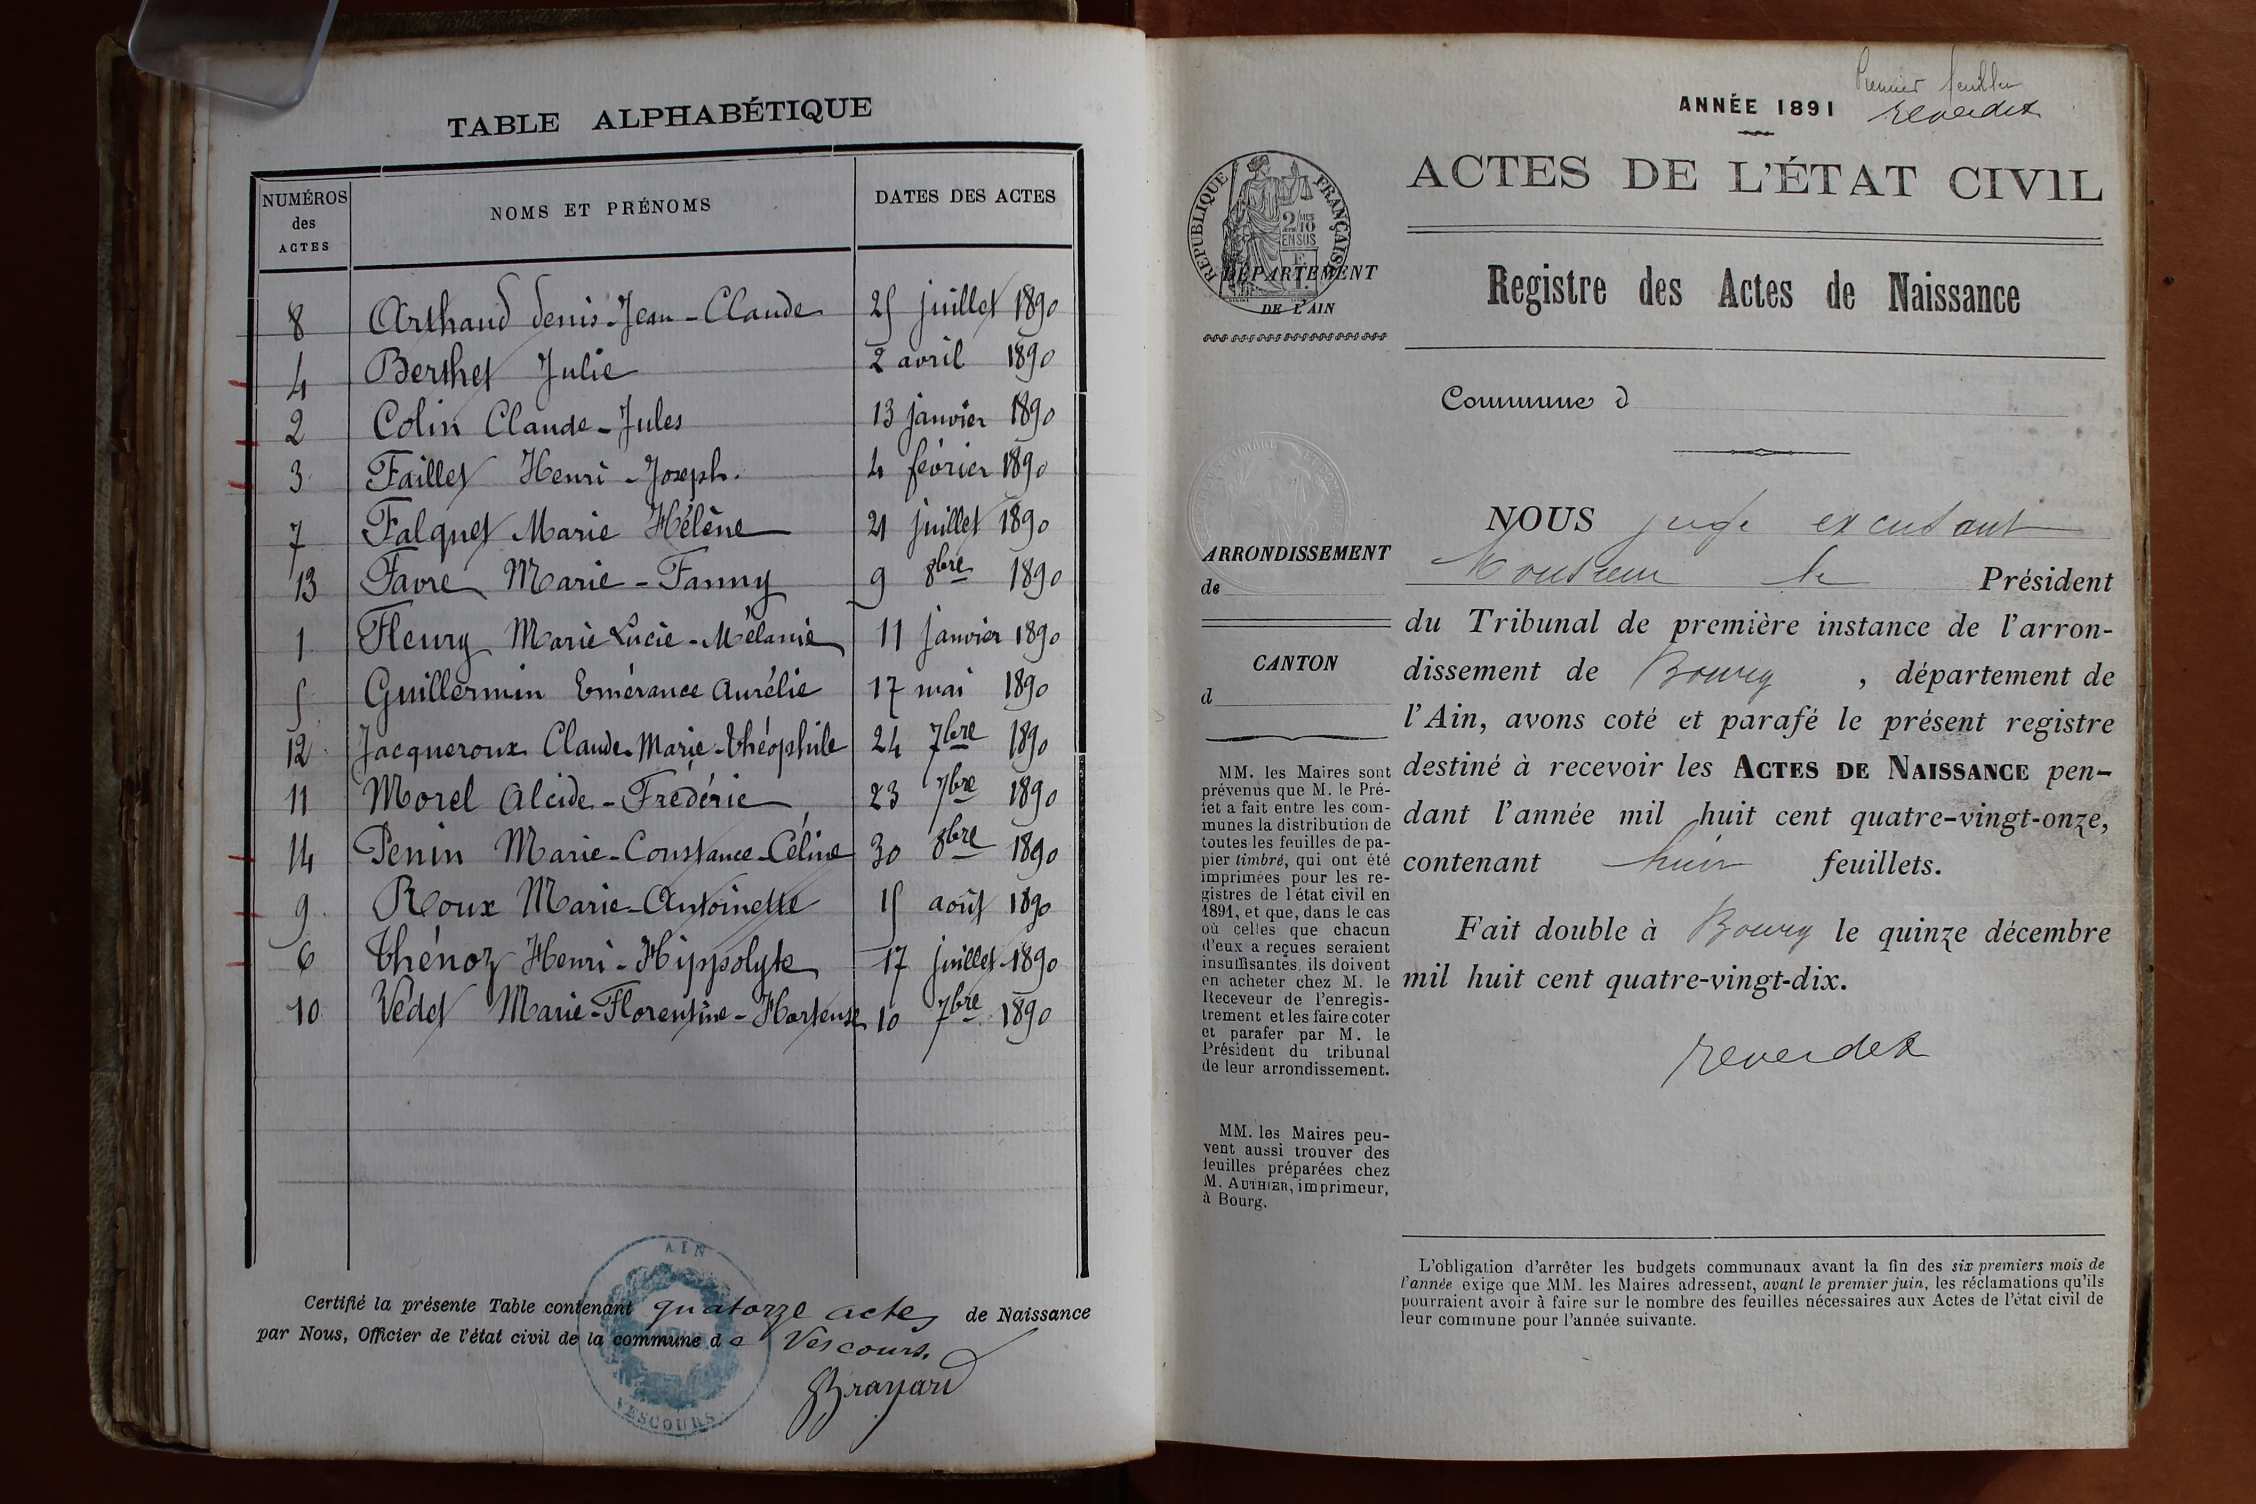 TABLE ALPHABÉTIQUE
NUMÉROS des ACTES
NOMS ET PRÉNOMS
DATES DES ACTES
8 Arthaud Denis-Jean-Claude 25 juillet 1890
4 Berthet Julie 2 avril 1890
2 Colin Claude-Jules 13 janvier 1890
3 Faillet Henri-Joseph. 4 février 1890
7 Falquet Marie Hélène 21 juillet 1890
13 Favre Marie-Fanny 9 8bre 1890
1 Fleury Marie Lucie-Mélanie 11 janvier 1890
5 Guillermin Emérance Aurélie 17 mai 1890
12 Jacqueroux Claude-Marie-Théophile 24 7bre 1890
11 Morel Alcide-Frédéric 23 7bre 1890
14 Penin Marie-Constance-Céline 30 8bre 1890
9 Roux Marie-Antoinette 15 août 1890
6 Thénoz Henri-Hippolyte 17 juillet 1890
10 Védet Marie-Florentine-Hortense 10 7bre 1890
AIN
Certifié la présente Table contenant quatorze actes de Naissance
par Nous, Officier de l'état civil de la commune de Vescours.
Brayard
VESCOURS
Premier feuillet
ANNÉE 1891 Reverdet
ACTES DE L'ÉTAT CIVIL
RÉPUBLIQUE FRANÇAISE
2/10 EN SUS
DÉPARTEMENT
DE L'AIN
Registre des Actes de Naissance
Commune d
ARRONDISSEMENT
de
CANTON
d
MM. les Maires sont
prévenus que M. le Pré-
fet a fait entre les com-
munes la distribution de
toutes les feuilles de pa-
pier timbré, qui ont été
imprimées pour les re-
gistres de l'état civil en
1891, et que, dans le cas
où celles que chacun
d'eux a reçues seraient
insuffisantes, ils doivent
en acheter chez M. le
Receveur de l'enregis-
trement et les faire coter
et parafer par M. le
Président du tribunal
de leur arrondissement.
MM. les Maires peu-
vent aussi trouver des
feuilles préparées chez
M. AUTHIER, imprimeur,
à Bourg.
NOUS juge excusant
Monsieur le Président
du Tribunal de première instance de l'arron-
dissement de Bourg, département de
l'Ain, avons coté et parafé le présent registre
destiné à recevoir les ACTES DE NAISSANCE pen-
dant l'année mil huit cent quatre-vingt-onze,
contenant huit feuillets.
Fait double à Bourg le quinze décembre
mil huit cent quatre-vingt-dix.
Reverdet
L'obligation d'arrêter les budgets communaux avant la fin des six premiers mois de
l'année exige que MM. les Maires adressent, avant le premier juin, les réclamations qu'ils
pourraient avoir à faire sur le nombre des feuilles nécessaires aux Actes de l'état civil de
leur commune pour l'année suivante.